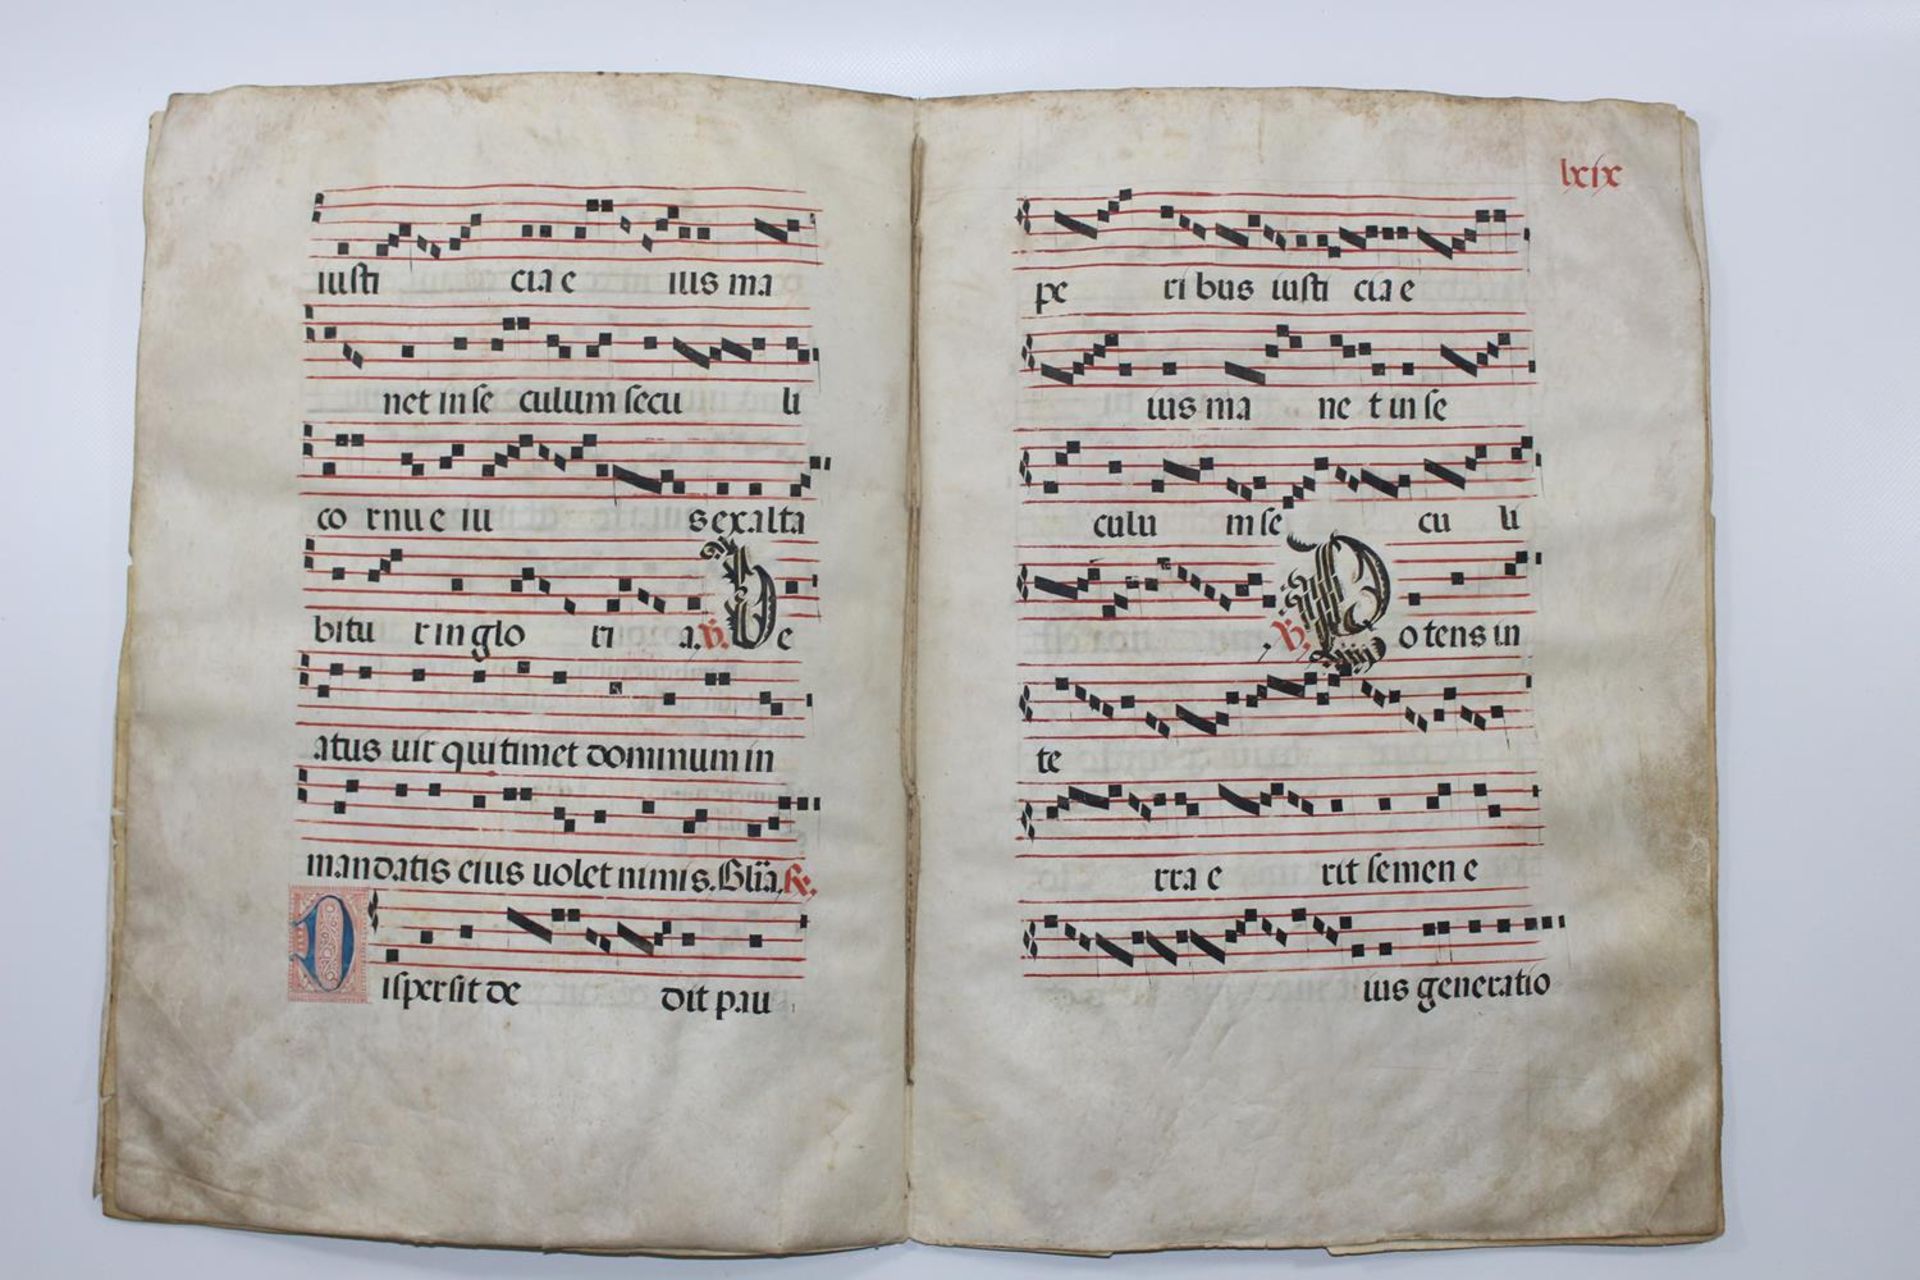 iusti cia e ius ma
net in se culum secu li
co rnu e iu s exalta
bitu r in glo ri a. ℣. Be
atus uir qui timet dominum in
mandatis eius uolet nimis. Gl̃ia. ℟.
Dispersit de dit pau
lxix
pe ri bus iusti cia e
ius ma ne t in se
culu m se cu li
℣. Potens in
te
rra e rit semen e
ius generatio